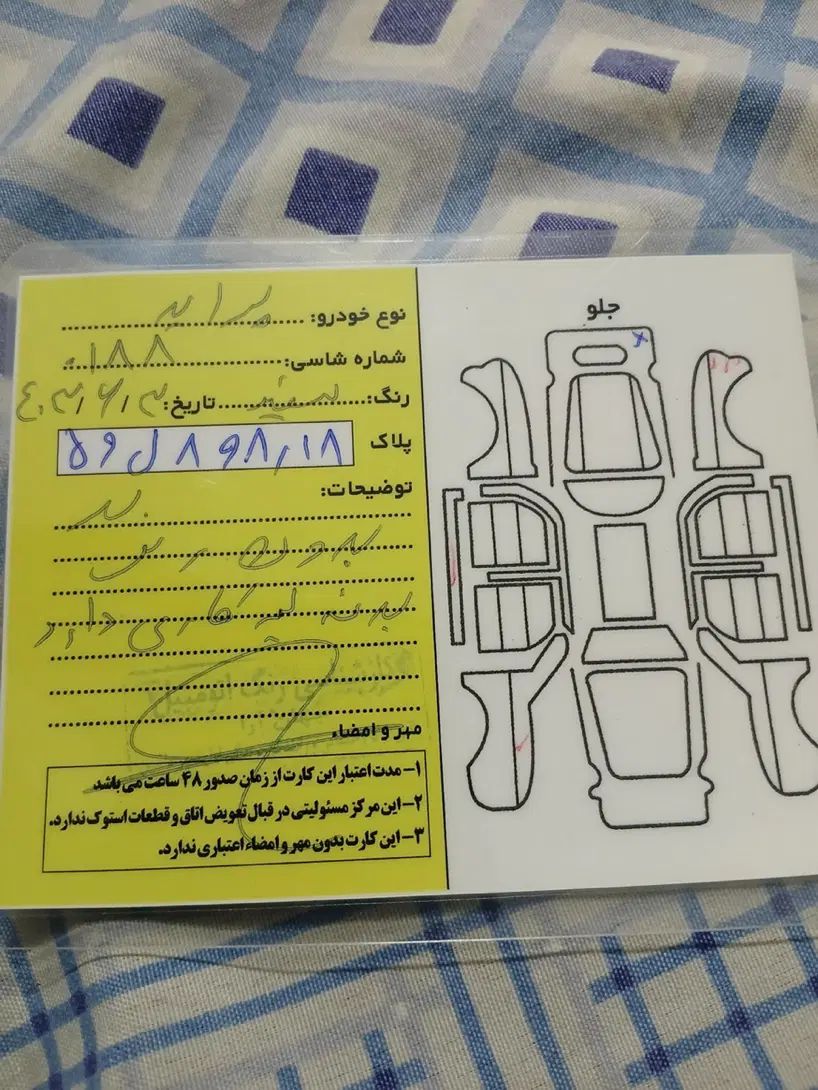 نوع خودرو: پراید
شماره شاسی: ۰۱۸۸
رنگ: سفید تاریخ: ۴۰۳/۶/۳
پلاک
توضیحات:
بدون رنگ
بدنه لیسه گیری دارد
کارشناسی رنگ اتومبیل
مهر و امضاء
۱- مدت اعتبار این کارت از زمان صدور ۴۸ ساعت می باشد
۲- این مرکز مسئولیتی در قبال تعویض اتاق و قطعات استوک ندارد.
۳- این کارت بدون مهر و امضاء اعتباری ندارد.
جلو